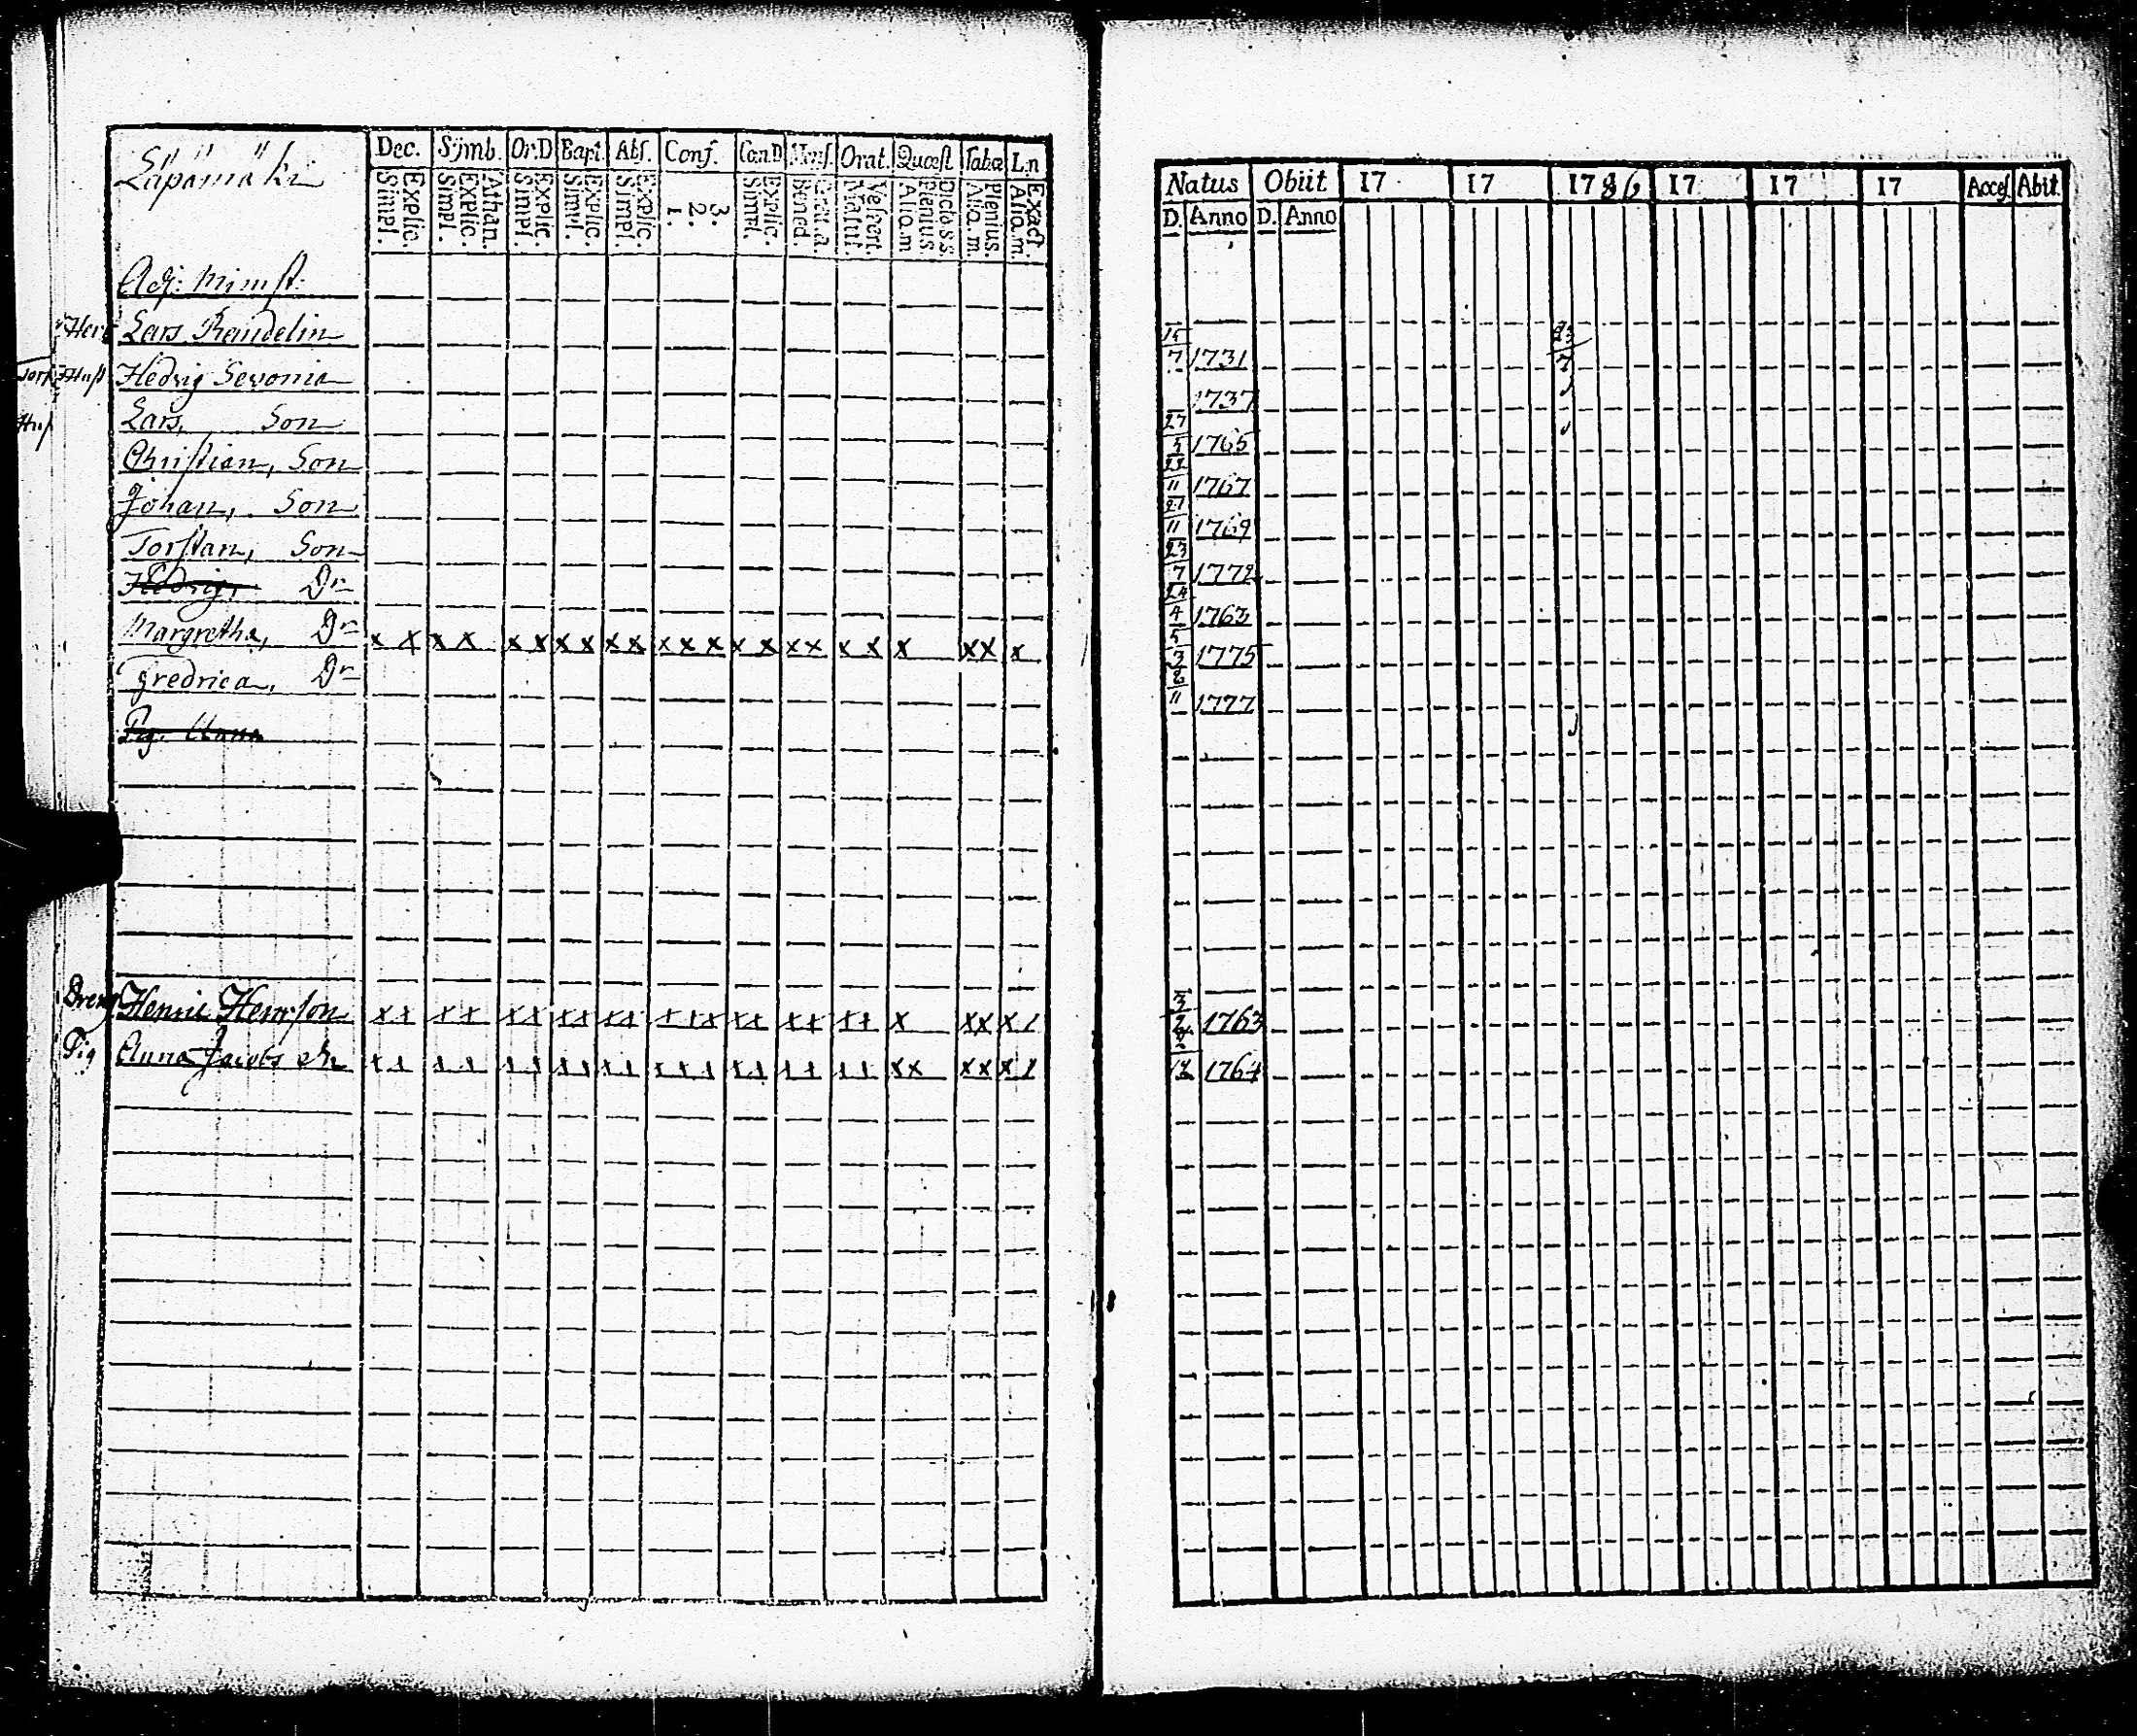 Dec. Sijmb. Or.D Bapt. Abs. Conf. Cœn.D Mens. Orat. Quæst Tabæ L.n
Explic. Simpl. Athan. Explic. Simpl. Explic. Simpl. Explic. Simpl. Explic. Simpl. 3. 2. 1. Explic. Simpl. Bened. Vespert. Matut. Plenius. Aliq.m Plenius. Aliq.m Exact Aliq.m.
Adj: Minist:
Herr Lars Randelin
Hust Hedvig
Lars, Son
Christian, Son
Johan, Son
Torstan, Son
Hedvig, Dr
Margretha, Dr x x x x x x x x x x x x x x x x x x x x x x x
Fredrica, Dr
Pig. Anna
Dreng Henric Henrsson
Pig Anna Jacobs dr
Natus Obiit 17 17 1786 17 17 17 Acces. Abit
D. Anno D. Anno
15
7 1731
1737
27
5 1765
22
11 1767
27
11 1769
23
7 1772
24
4 1763
5
3 1775
2
11 1777
3
2 1763
12 1764